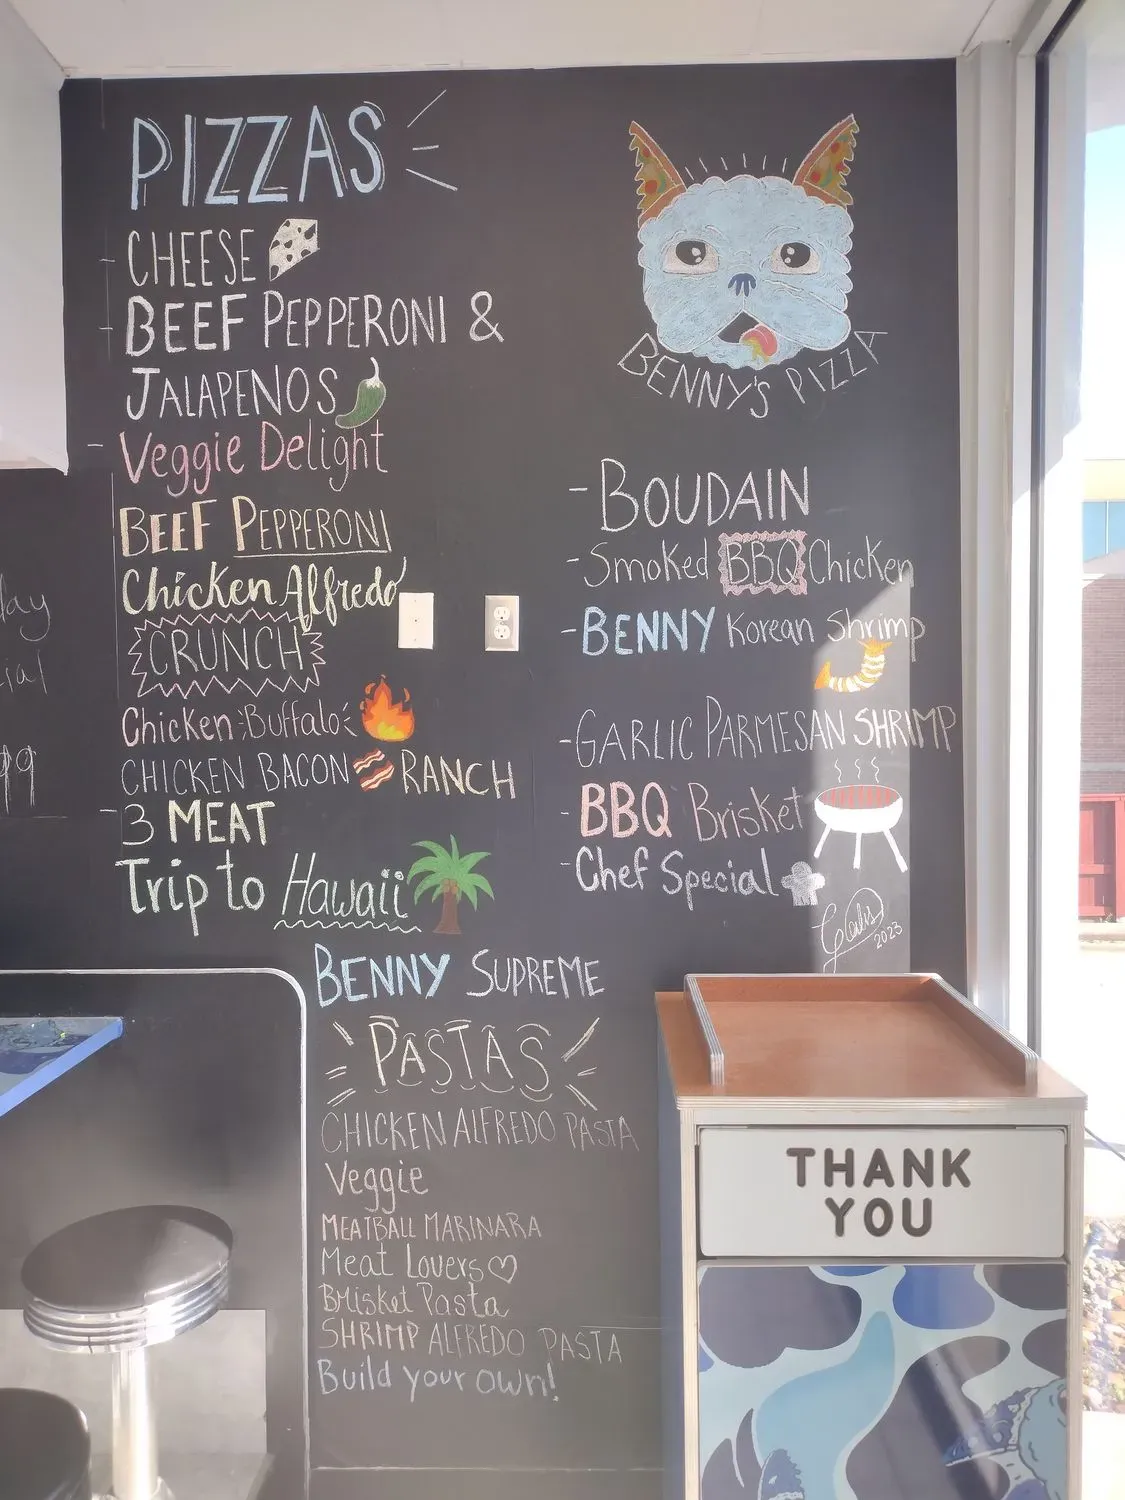 PIZZAS
- CHEESE
- BEEF PEPPERONI &
JALAPENOS
- Veggie Delight
BEEF PEPPERONI
Chicken Alfredo
CRUNCH
Chicken Buffalo
CHICKEN BACON RANCH
- 3 MEAT
Trip to Hawaii
BENNY SUPREME
BENNY'S PIZZA
- BOUDAIN
- Smoked BBQ Chicken
- BENNY Korean Shrimp
- GARLIC PARMESAN SHRIMP
- BBQ Brisket
- Chef Special
2023
PASTAS
CHICKEN ALFREDO PASTA
Veggie
MEATBALL MARINARA
Meat Lovers
Brisket Pasta
SHRIMP ALFREDO PASTA
Build your own!
THANK
YOU